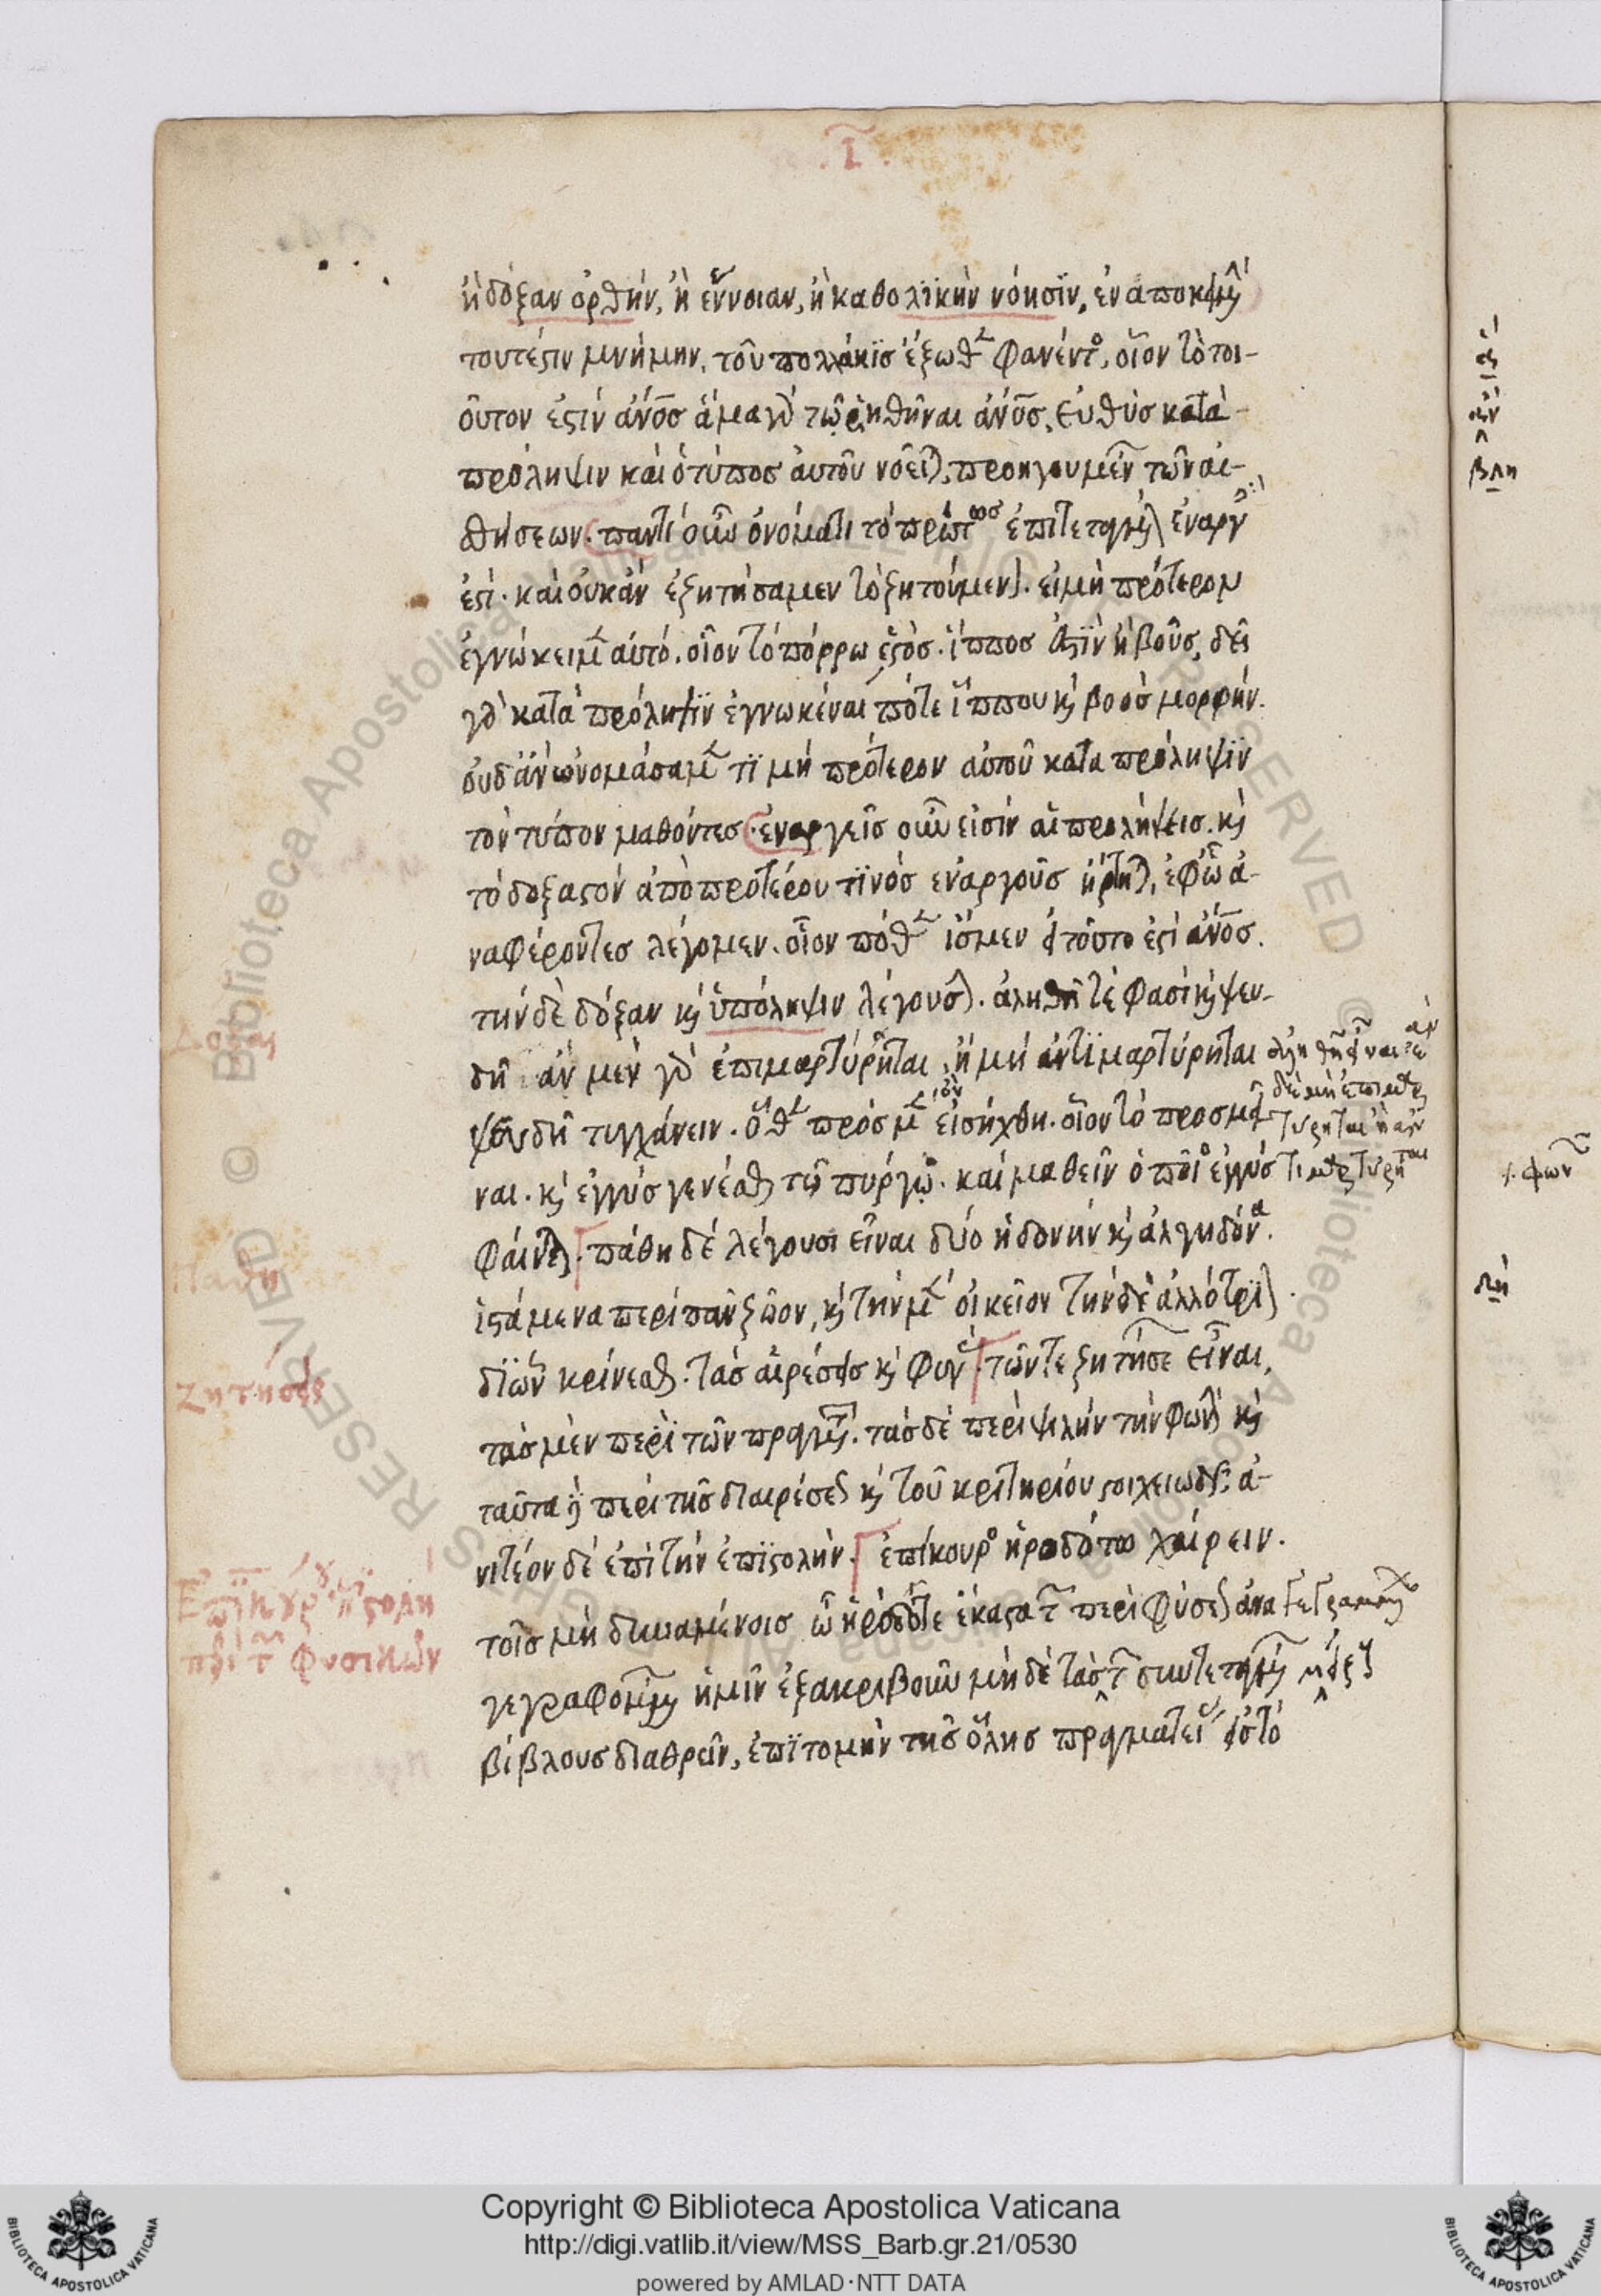 .ι̅.
ἢ δόξαν ὀρθήν, ἢ ἔννοιαν, ἢ καθολϊκὴν νόησϊν, ἐναποκειμένην
τουτέστιν μνήμην, τοῦ πολλάκϊσ ἔξωθεν φανέντος, οἷον τὸ τοι-
οῦτον ἐστὶν ἄνοσ ἅμα γὰρ τῶ ρηθῆναι ἄνοσ, εὐθὺσ κατὰ
πρόληψιν καὶ ὁ τύποσ αὐτοῦ νοεῖται, προηγουμένων τῶν αἰ-
σθήσεων. παντὶ οὖν ὀνόματι τὸ πρώτωσ ἐπιτεταγμένον ἐναργές
ἐστι. καὶ οὐκ ἂν ἐζητήσαμεν τὸ ζητούμενον. εἰ μὴ πρότερον
ἐγνώκειμεν αὐτό. οἷον τὸ πόρρω ἑστὸσ. ἵπποσ ἐστϊν ἢ βοῦσ, δεῖ
γὰρ κατὰ πρόληψϊν ἐγνωκέναι ποτὲ ἵππου καὶ βοὸσ μορφήν.
οὐδ ἂν ὠνομάσαμεν τϊ μὴ πρότερον αὐτοῦ κατα πρόληψϊν
τὸν τύπον μαθόντεσ. ἐναργεῖσ οὖν εἰσίν αἱ προλήψεισ. καὶ
τὸ δοξαστόν ἀπὸ προτέρου τϊνὸσ ἐναργοῦσ ἤρτηται, ἐφ ὧ ἀ-
ναφέροντεσ λέγομεν. οἷον πόθεν ἴσμεν εἰ τοῦτο ἐστὶ ἄνοσ.
τὴν δὲ δόξαν καὶ ὑπόληψιν λέγουσιν. ἀληθῆ τέ φασὶ καὶ ψευ-
δῆ ἂν μὲν γὰρ ἐπιμαρτύρηται, ἢ μὴ ἀντϊμαρτύρηται ἀληθῆ εἶναι ἐὰν
δὲ μὴ ἐπιμαρ
τύρηται ἢ ἀν
τιμαρτύρηται
ψευδῆ τυγχάνειν. ὅθεν προσμένον εἰσήχθη. οἷον τὸ προσμεῖ
ναι. καὶ ἐγγὺσ γενέσθαι τῶ πύργω. καὶ μαθεῖν ὁποῖος ἐγγὺσ
φαίνεται. πάθη δὲ λέγουσι εἶναι δύο ἡδονὴν καὶ ἀλγηδόνα.
ἱστάμενα περὶ πᾶν ζῶον, καὶ τὴν μὲν οἰκεῖον τὴν δὲ ἀλλότρϊον.
δϊ ὧν κρίνεσθαι. τὰσ αἱρέσεισ καὶ φυγάς. τῶν τε ζητήσεων εἶναι,
τὰσ μὲν περὶ τῶν πραγμάτων. τὰσ δὲ περὶ ψιλὴν τὴν φωνήν καὶ
ταῦτα δὲ περὶ τῆσ διαιρέσεωσ καὶ τοῦ κριτηρίου στοιχειωδῶς ἀ-
νιτέον δὲ ἐπὶ τὴν ἐπϊστολὴν. ἐπίκουρος ἡροδότω χαίρειν.
τοῖσ μὴ δυναμένοισ ὦ ἡρόδοτε ἕκαστα τῶν περὶ φύσεωσ ἀναγεγραμμένων
ἡμῖν ἐξακριβοῦν μὴ δὲ τὰσ τῶν συντεταγμένων μείζουσ
βίβλουσ διαθρεῖν, ἐπϊτομὴν τῆσ ὅλησ πραγματείας εἰσ τὸ
Δόξαι
Πάθη
ζητήσεις
Ἐπϊκούρου ἐπϊστολὴ
περὶ τῶν φυσικῶν
φων
Copyright © Biblioteca Apostolica Vaticana
http://digi.vatlib.it/view/MSS_Barb.gr.21/0530
powered by AMLAD·NTT DATA
BIBLIOTECA APOSTOLICA VATICANA
BIBLIOTECA APOSTOLICA VATICANA